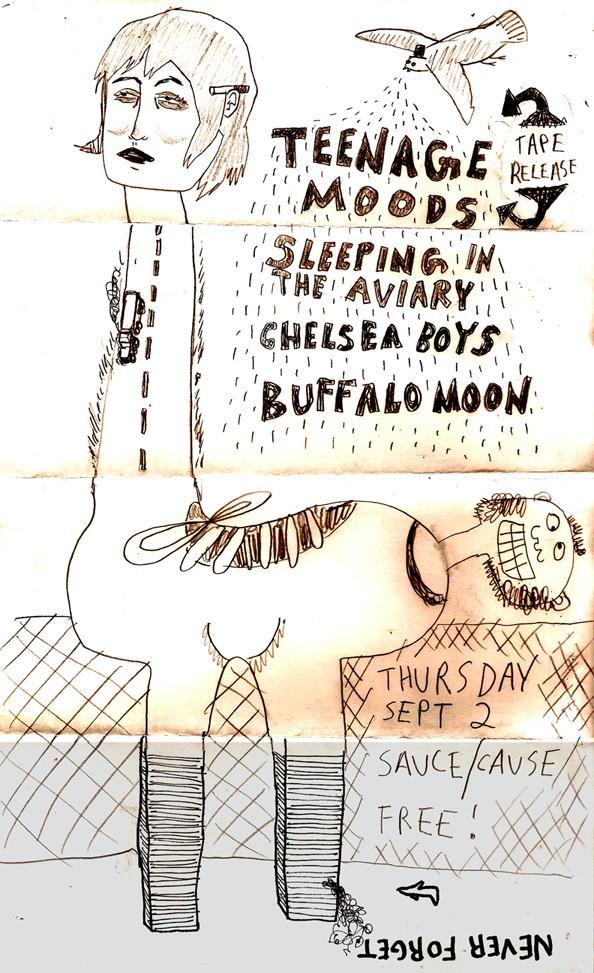 TEENAGE
MOODS
TAPE
RELEASE
SLEEPING IN
THE AVIARY
CHELSEA BOYS
BUFFALO MOON
THURSDAY
SEPT 2
SAUCE/CAUSE
FREE!
NEVER FORGET